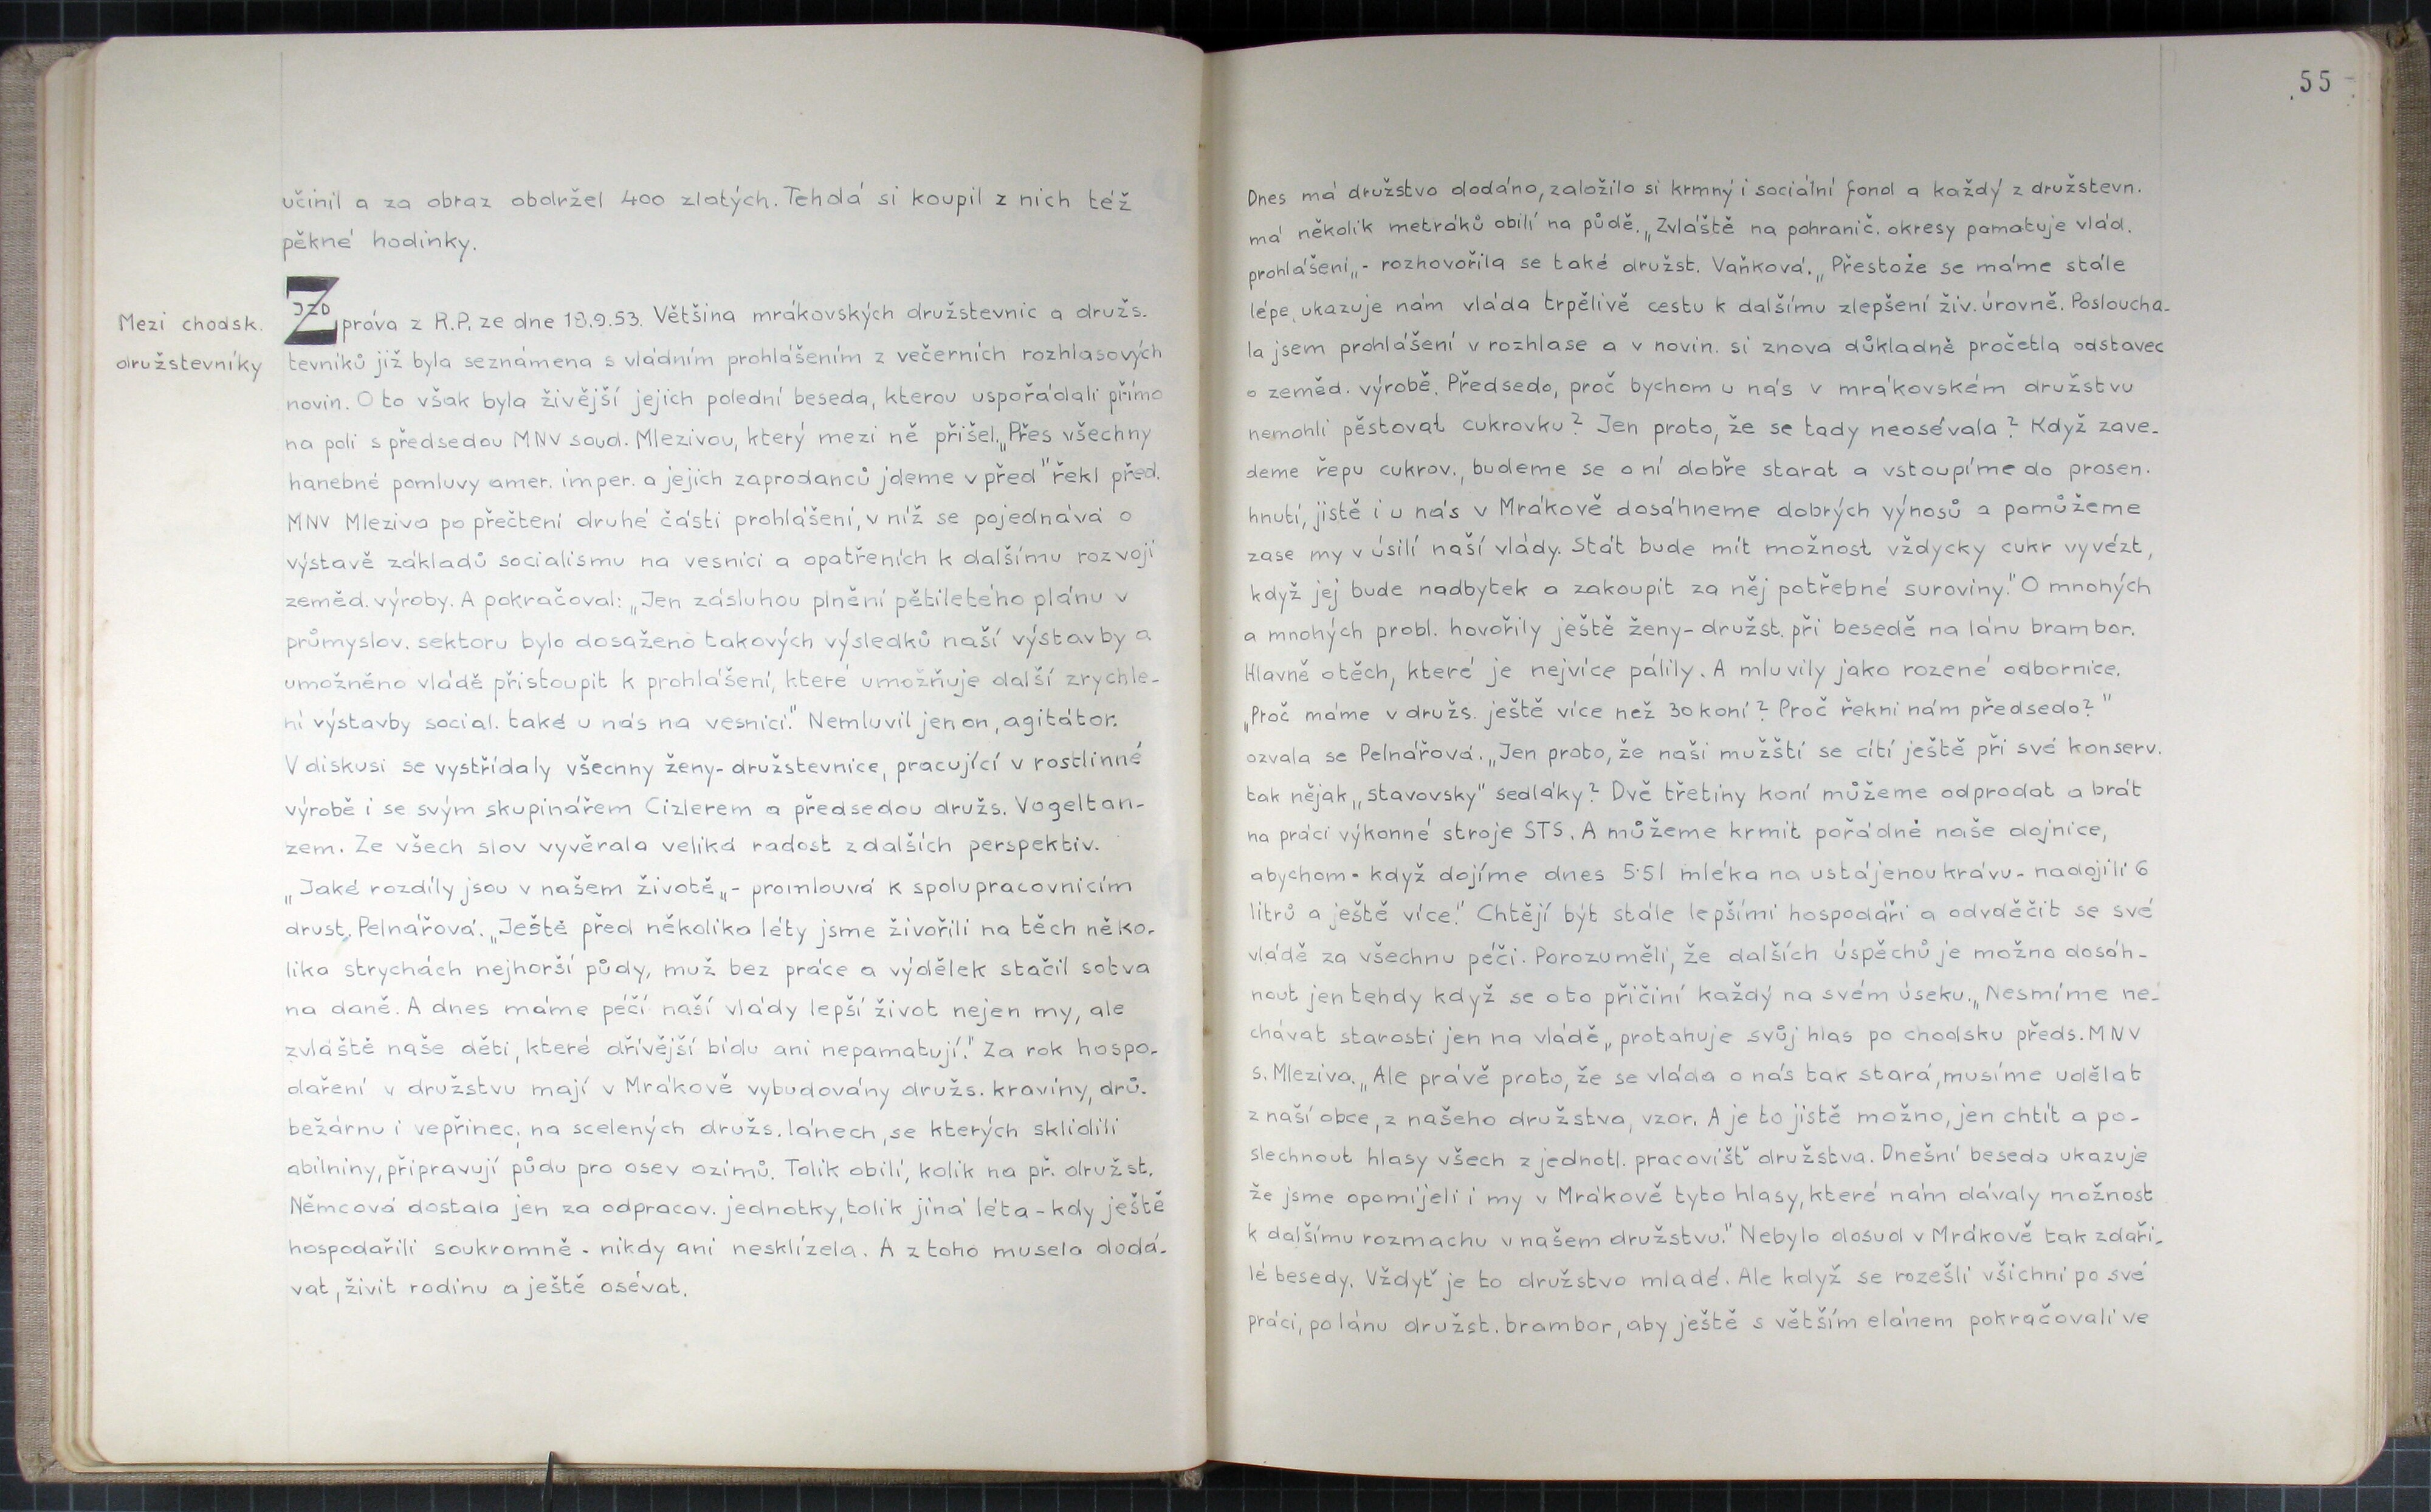 učinil a za obraz obdržel 400 zlatých. Tehdá si koupil z nich též
pěkné hodinky.
Mezi chodsk.
družstevníky
JZD
Zpráva z R.P. ze dne 18.9.53. Většina mrákovských družstevnic a družs.
tevníků již byla seznámena s vládním prohlášením z večerních rozhlasových
novin. O to však byla živější jejich polední beseda, kterou uspořádali přímo
na poli s předsedou MNV soud. Mlezivou, který mezi ně přišel. „Přes všechny
hanebné pomluvy amer. imper. a jejich zaprodanců jdeme v před" řekl před.
MNV Mleziva po přečtení druhé části prohlášení, v níž se pojednává o
výstavě základů socialismu na vesnici a opatřeních k dalšímu rozvoji
zeměd. výroby. A pokračoval: „Jen zásluhou plnění pětiletého plánu v
průmyslov. sektoru bylo dosaženo takových výsledků naší výstavby a
umožněno vládě přistoupit k prohlášení, které umožňuje další zrychle-
ní výstavby social. také u nás na vesnici." Nemluvil jen on, agitátor.
V diskusi se vystřídaly všechny ženy-družstevnice, pracující v rostlinné
výrobě i se svým skupinářem Cizlerem a předsedou družs. Vogeltan-
zem. Ze všech slov vyvěrala veliká radost z dalších perspektiv.
„Jaké rozdíly jsou v našem životě„- promlouvá k spolupracovnicím
drust. Pelnářová. „Ještě před několika léty jsme živořili na těch něko-
lika strychách nejhorší půdy, muž bez práce a výdělek stačil sotva
na daně. A dnes máme péčí naší vlády lepší život nejen my, ale
zvláště naše děti, které dřívější bídu ani nepamatují." Za rok hospo-
daření v družstvu mají v Mrákově vybudovány družs. kravíny, drů-
bežárnu i vepřinec, na scelených družs. lánech, se kterých sklidili
obilniny, připravují půdu pro osev ozimů. Tolik obilí, kolik na př. družst.
Němcová dostala jen za odpracov. jednotky, tolik jiná léta-kdy ještě
hospodařili soukromně - nikdy ani nesklízela. A z toho musela dodá-
vat, živit rodinu a ještě osévat.
55
Dnes má družstvo dodáno, založilo si krmný i sociální fond a každý z družstevn.
má několik metráků obilí na půdě. „Zvláště na pohranič. okresy pamatuje vlád.
prohlášení„- rozhovořila se také družst. Vaňková. „Přestože se máme stále
lépe, ukazuje nám vláda trpělivě cestu k dalšímu zlepšení živ. úrovně. Posloucha-
la jsem prohlášení v rozhlase a v novin. si znova důkladně pročetla odstavec
o zeměd. výrobě. Předsedo, proč bychom u nás v mrákovském družstvu
nemohli pěstovat cukrovku? Jen proto, že se tady neosévala? Když zave-
deme řepu cukrov., budeme se o ní dobře starat a vstoupíme do prosen.
hnutí, jistě i u nás v Mrákově dosáhneme dobrých výnosů a pomůžeme
zase my v úsilí naší vlády. Stát bude mít možnost vždycky cukr vyvézt,
když jej bude nadbytek a zakoupit za něj potřebné suroviny." O mnohých
a mnohých probl. hovořily ještě ženy-družst. při besedě na lánu brambor.
Hlavně o těch, které je nejvíce pálily. A mluvily jako rozené odbornice.
„Proč máme v družs. ještě více než 30 koní? Proč řekni nám předsedo?"
ozvala se Pelnářová. „Jen proto, že naši mužští se cítí ještě při své konserv.
tak nějak „stavovsky" sedláky? Dvě třetiny koní můžeme odprodat a brát
na práci výkonné stroje STS. A můžeme krmit pořádně naše dojnice,
abychom - když dojíme dnes 5·5 l mléka na ustájenou krávu - nadojili 6
litrů a ještě více." Chtějí být stále lepšími hospodáři a odvděčit se své
vládě za všechnu péči. Porozuměli, že dalších úspěchů je možno dosáh-
nout jen tehdy když se o to přičiní každý na svém úseku. „Nesmíme ne-
chávat starosti jen na vládě„ protahuje svůj hlas po chodsku předs. MNV
s. Mleziva. „Ale právě proto, že se vláda o nás tak stará, musíme udělat
z naší obce, z našeho družstva, vzor. A je to jistě možno, jen chtít a po-
slechnout hlasy všech z jednotl. pracovišť družstva. Dnešní beseda ukazuje
že jsme opomíjeli i my v Mrákově tyto hlasy, které nám dávaly možnost
k dalšímu rozmachu v našem družstvu." Nebylo dosud v Mrákově tak zdaři-
lé besedy. Vždyť je to družstvo mladé. Ale když se rozešli všichni po své
práci, po lánu družst. brambor, aby ještě s větším elánem pokračovali ve